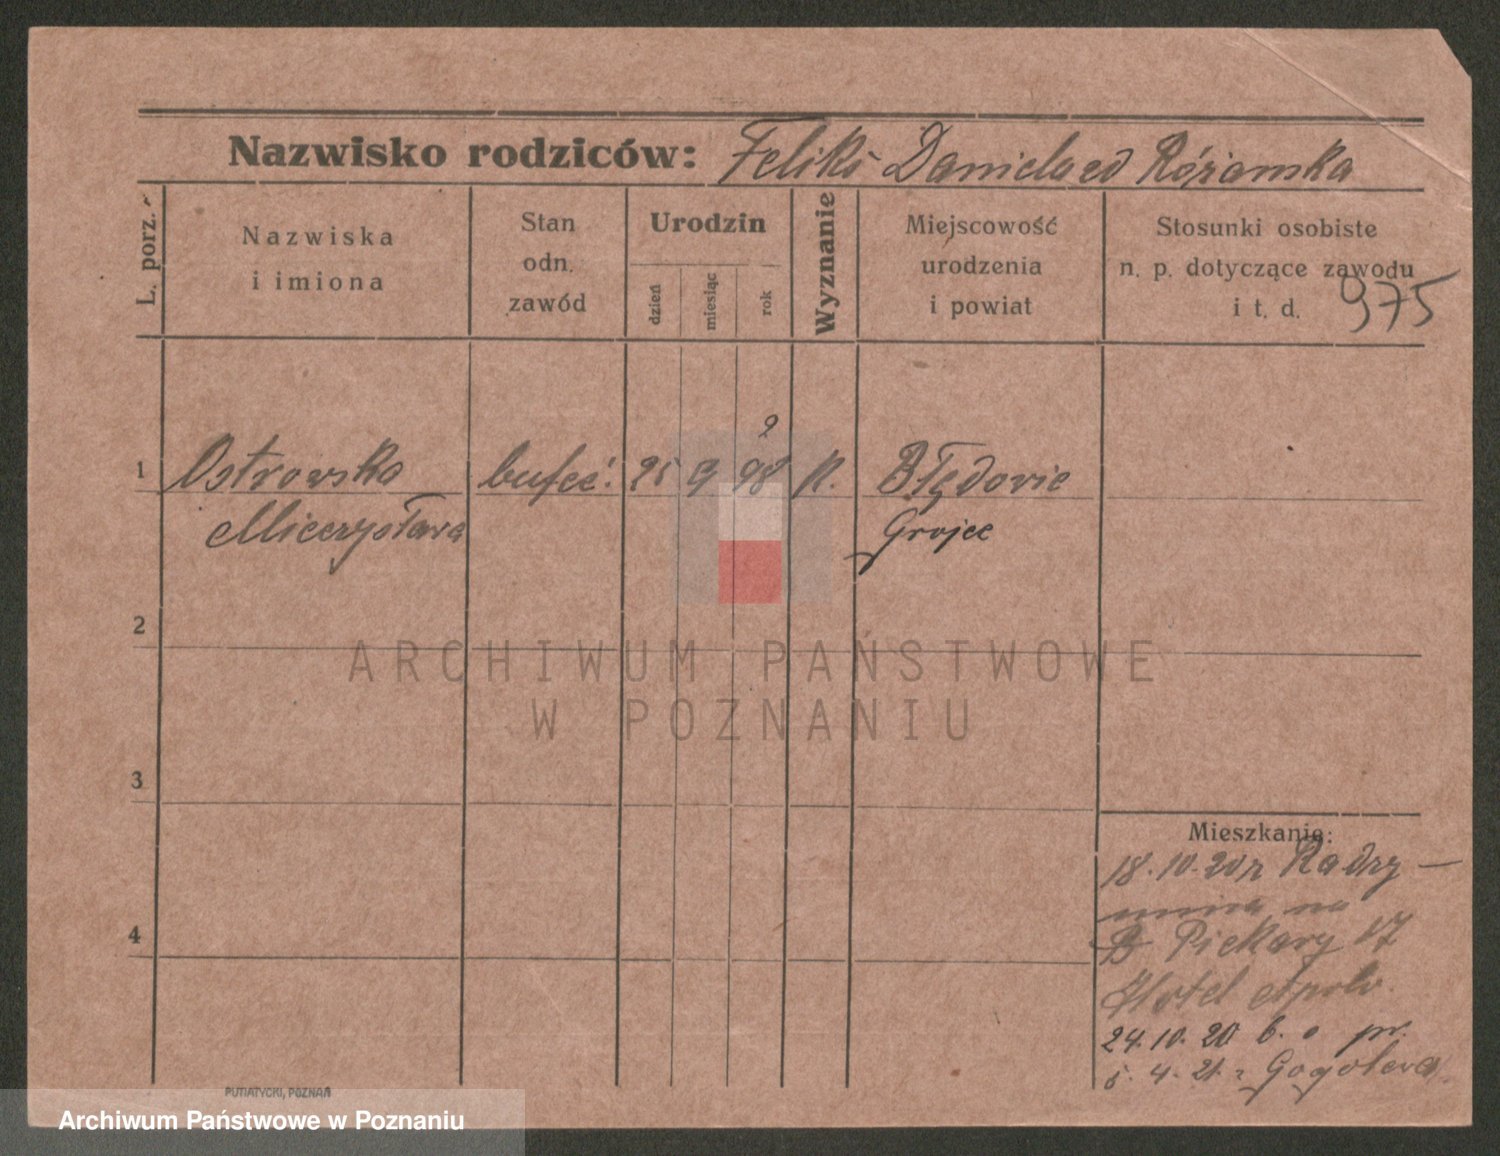 Nazwisko rodziców: Feliks Daniela ed Różamska
L. porz.
Nazwiska
i imiona
Stan
odn.
zawód
Urodzin
dzień
miesiąc
rok
Wyznanie
Miejscowość
urodzenia
i powiat
Stosunki osobiste
n. p. dotyczące zawodu
i t. d.
975
1
Ostrowska
Mieczysława
bufeć.
25
9
98
K.
Błędovie
Grojec
2
3
4
ARCHIWUM PAŃSTWOWE
W POZNANIU
Mieszkanie:
18.10.20 z Radzy-
mina na
Piekary 17
Hotel Apolo.
24.10.20 b. o pr.
5.4.21. z Gogolewa
PUTIATYCKI, POZNAŃ
Archiwum Państwowe w Poznaniu